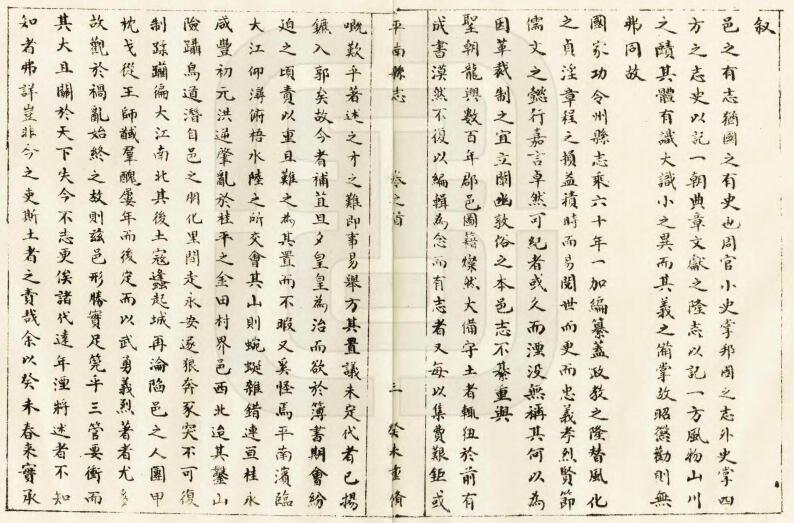 叙
邑之有志猶國之有史也周官小史掌邦國之志外史掌四
方之志史以記一朝典章文獻之隆志以記一方風物山川
之賾其體有識大識小之異而其義之備掌故昭懲勸則無
弗同故
國家功令州縣志乘六十年一加編纂蓋政教之隆替風化
之貞淫章程之損益積時而易閱世而更而忠義孝烈賢節
儒文之懿行嘉言卓然可紀者或久而湮没無稱其何以為
因革裁制之宜立闡幽敦俗之本邑志不綦重與
聖朝龍興數百年郡邑圖籍燦然大備守土者輒狃於前有
成書漠然不復以編輯為念而有志者又每以集費艱鉅或
平南縣志
卷之首
三
癸未重脩
嘅歎乎著述之才之難即事易舉方其置議未定代者已揚
鑣入郭矣故今者補苴旦夕皇皇為治而欲於簿書期會紛
迫之頃責以重且難之為其置而不暇又奚怪焉平南濱臨
大江仰潯俯梧水陸之所交會其山則蜿蜒雜錯連亘桂永
咸豐初元洪逆肇亂於桂平之金田村界邑西北迨其鑿山
險躡鳥道潛自邑之朋化里閒走永安逐狼奔豕突不可復
制蹂躪徧大江南北其後土寇蠭起城再淪陷邑之人團甲
枕戈從王師馘羣醜屢年而後定而以武勇義烈著者尤多
故觀於禍亂始終之故則兹邑形勝實足筦乎三管要衝而
其大且關於天下失今不志更俟諸代遠年湮將述者不知
知者弗詳豈非今之吏斯土者之責哉余以癸未春來實承